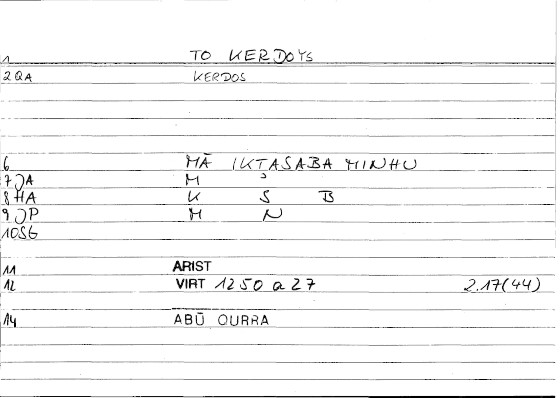 1 TO KERDOYS
2 QA KERDOS
6 MĀ IKTASABA MINHU
7 JA M ʾ
8 HA K S B
9 JP M N
10SG
11 ARIST
12 VIRT 1250 a 27 2.17(44)
14 ABŪ QURRA